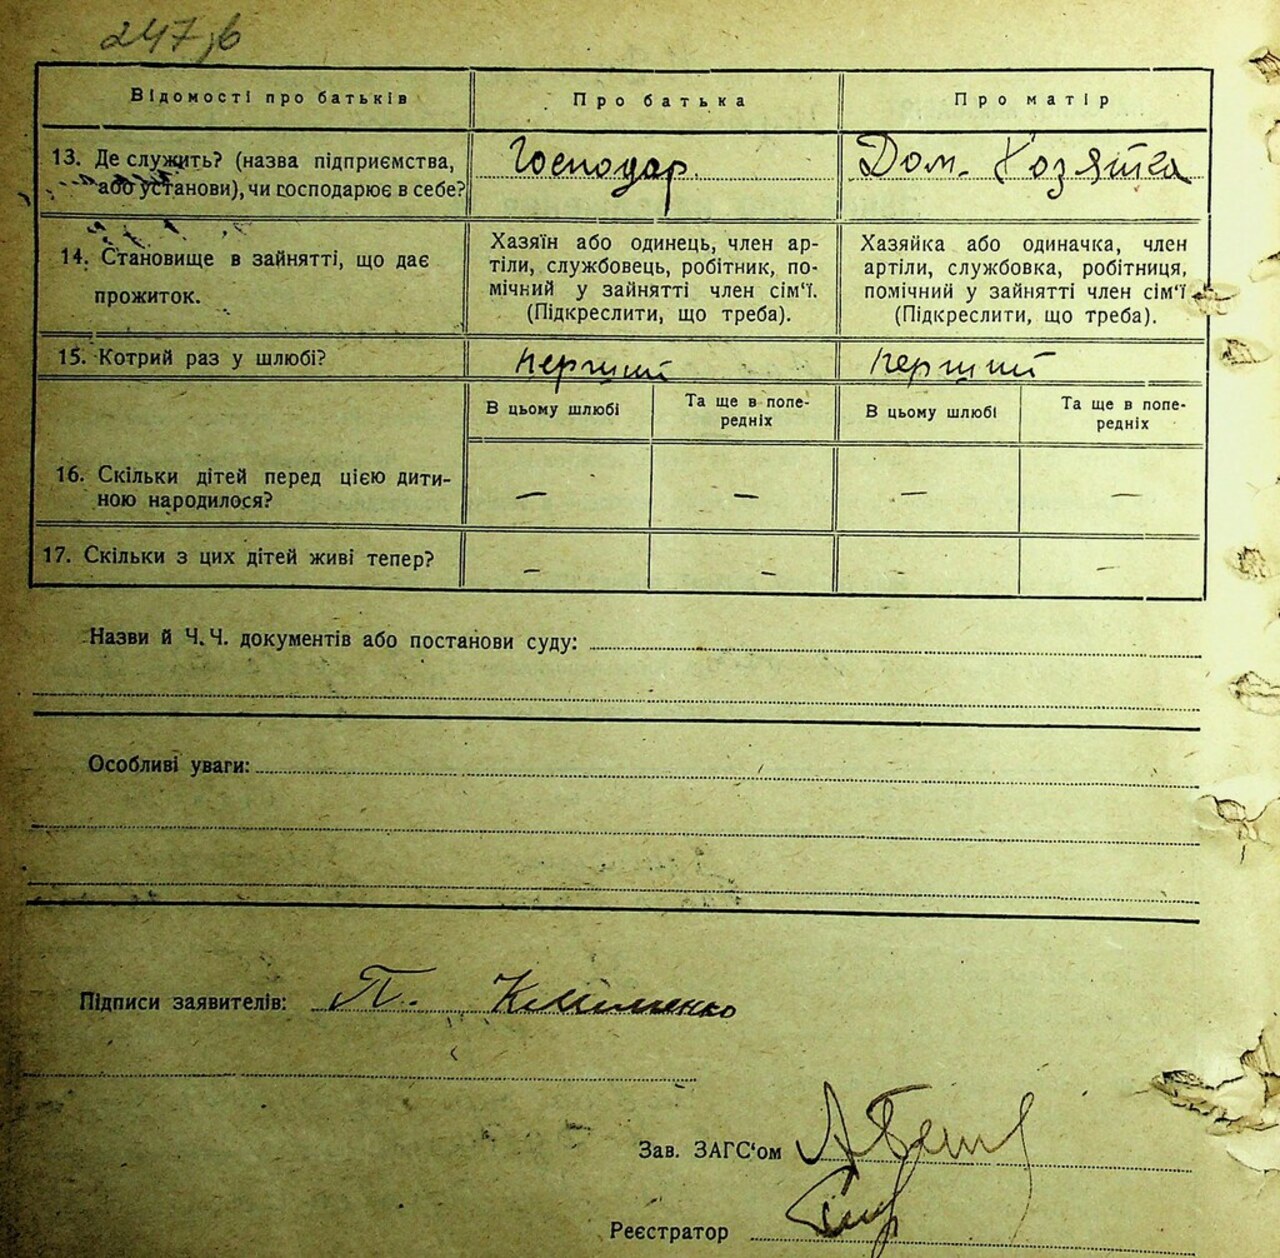 247,б
Відомості про батьків
Про батька
Про матір
13. Де служить? (назва підприємства,
або установи), чи господарює в себе?
Господар.
Дом. Хозяйка
14. Становище в зайнятті, що дає
прожиток.
Хазяїн або одинець, член ар-
тіли, службовець, робітник, по-
мічний у зайнятті член сім‘ї.
(Підкреслити, що треба).
Хазяйка або одиначка, член
артіли, службовка, робітниця,
помічний у зайнятті член сім‘ї
(Підкреслити, що треба).
15. Котрий раз у шлюбі?
перший
перший
В цьому шлюбі
Та ще в попе-
редніх
В цьому шлюбі
Та ще в попе-
редніх
16. Скільки дітей перед цією дити-
ною народилося?
—
—
—
—
17. Скільки з цих дітей живі тепер?
—
—
—
—
Назви й Ч.Ч. документів або постанови суду:
Особливі уваги:
Підписи заявителів: П. Клименко
Зав. ЗАГС‘ом
Реєстратор